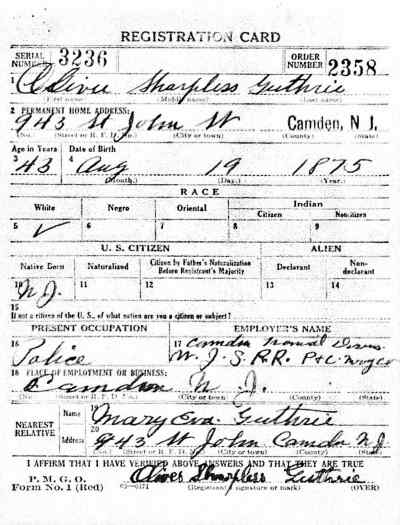 REGISTRATION CARD
SERIAL NUMBER 3236 ORDER NUMBER 2358
1 Oliver Sharpless Guthrie
(First name) (Middle name) (Last name)
2 PERMANENT HOME ADDRESS:
943 St John St Camden, N J.
(No.) (Street or R. F. D. No.) (City or town) (County) (State)
Age in Years Date of Birth
3 43 4 Aug 19 1875
(Month.) (Day.) (Year.)
RACE
White Negro Oriental Indian
Citizen Noncitizen
5 ✓ 6 7 8 9
U. S. CITIZEN ALIEN
Native Born Naturalized Citizen by Father's Naturalization Before Registrant's Majority Declarant Non-declarant
10 N J. 11 12 13 14
15
If not a citizen of the U. S., of what nation are you a citizen or subject?
PRESENT OCCUPATION EMPLOYER'S NAME
16 Police 17 Camden
W. J. S. R.R.
18 PLACE OF EMPLOYMENT OR BUSINESS:
Camden N. J.
(No.) (Street or R. F. D. No.) (City or town) (County) (State)
NEAREST RELATIVE Name 19 Mary Eva Guthrie
Address 20 943 St John Camden N J
(No.) (Street or R. F. D. No.) (City or town) (County) (State)
I AFFIRM THAT I HAVE VERIFIED ABOVE ANSWERS AND THAT THEY ARE TRUE
P. M. G. O.
Form No. 1 (Red) Oliver Sharpless Guthrie
(Registrant's signature or mark) (OVER)